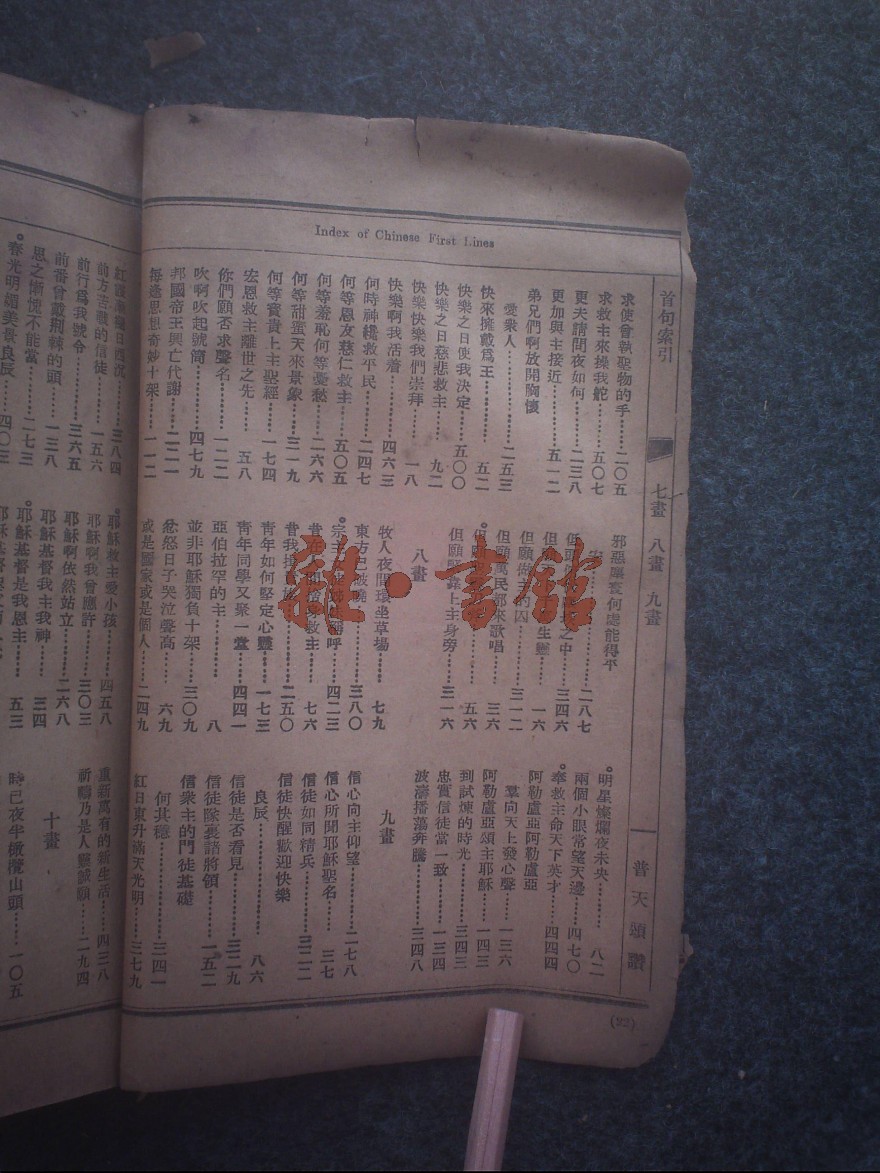 Index of Chinese First Lines
首句索引
七畫 八畫 九畫
普天頌讚
(92)
求使曾執聖物的手……二〇五
求救主來操我舵……五〇七
更夫請問夜如何……二三八
更加與主接近……五一二
弟兄們啊放開胸懷
愛衆人……二五三
快來擁戴爲王……五二
快樂之日使我決定……五〇〇
快樂之日慈悲救主……九二
快樂快樂我們崇拜……一八
快樂啊我活着……四六三
何時神纔救平民……二四七
何等恩友慈仁救主……五〇五
何等羞恥何等憂愁……二六六
何等甜蜜天來景象……三一九
何等寶貴上主聖經……一七四
宏恩救主離世之先……五八
你們願否求聲名……一二二
吹啊吹起號筒……四七九
邦國帝王興亡代謝……二二一
每逢思想奇妙十架……一一二
何處能得平
二八七
之中……三四六
但願做主的囚……三一二
生靈……一六
但願萬民都來歌唱……三六
五六
但願緊靠上主身旁……三一六
八畫
牧人夜間環坐草場……七九
東方已破曉……三八〇
四二三
救主……七六
二五〇
青年如何堅定心靈……一七三
青年同學又聚一堂……四四一
亞伯拉罕的主……八
並非耶穌獨負十架……三〇九
忿怒日子哭泣聲高……六九
或是國家或是個人……二四九
。明星燦爛夜未央……八二
兩個小眼常望天邊……四七〇
。奉救主命天下英才……四四四
阿勒盧亞阿勒盧亞
羣向天上發心聲……一三六
阿勒盧亞頌主耶穌……一四三
到試煉的時光……三四三
忠實信徒當一致……一三四
波濤播蕩奔騰……三四八
九畫
信心向主仰望……二七八
信心所聞耶穌聖名……三七
信徒如同精兵……三二二
信徒快醒歡迎快樂
良辰……八六
信徒是否看見……三二九
信徒隊裏諸將領……一五二
信衆主的門徒基礎
何其穩……三四一
紅日東升滿天光明……三七九
三八四
前方苦戰的信徒……一五六
前行爲我號令……三六五
前番曾戴荆棘的頭……一三八
思之慚愧不能當……二七三
。春光明媚美景良辰……四〇三
。耶穌救主愛小孩……四五八
耶穌啊我曾應許……三〇三
耶穌啊依然站立……二六八
耶穌基督我主我神……三四
。耶穌基督是我恩主……五三
重新萬有的新生活……四三八
祈禱乃是人靈誠願……二九四
十畫
時已夜半橄欖山頭……一〇五
雜·書館